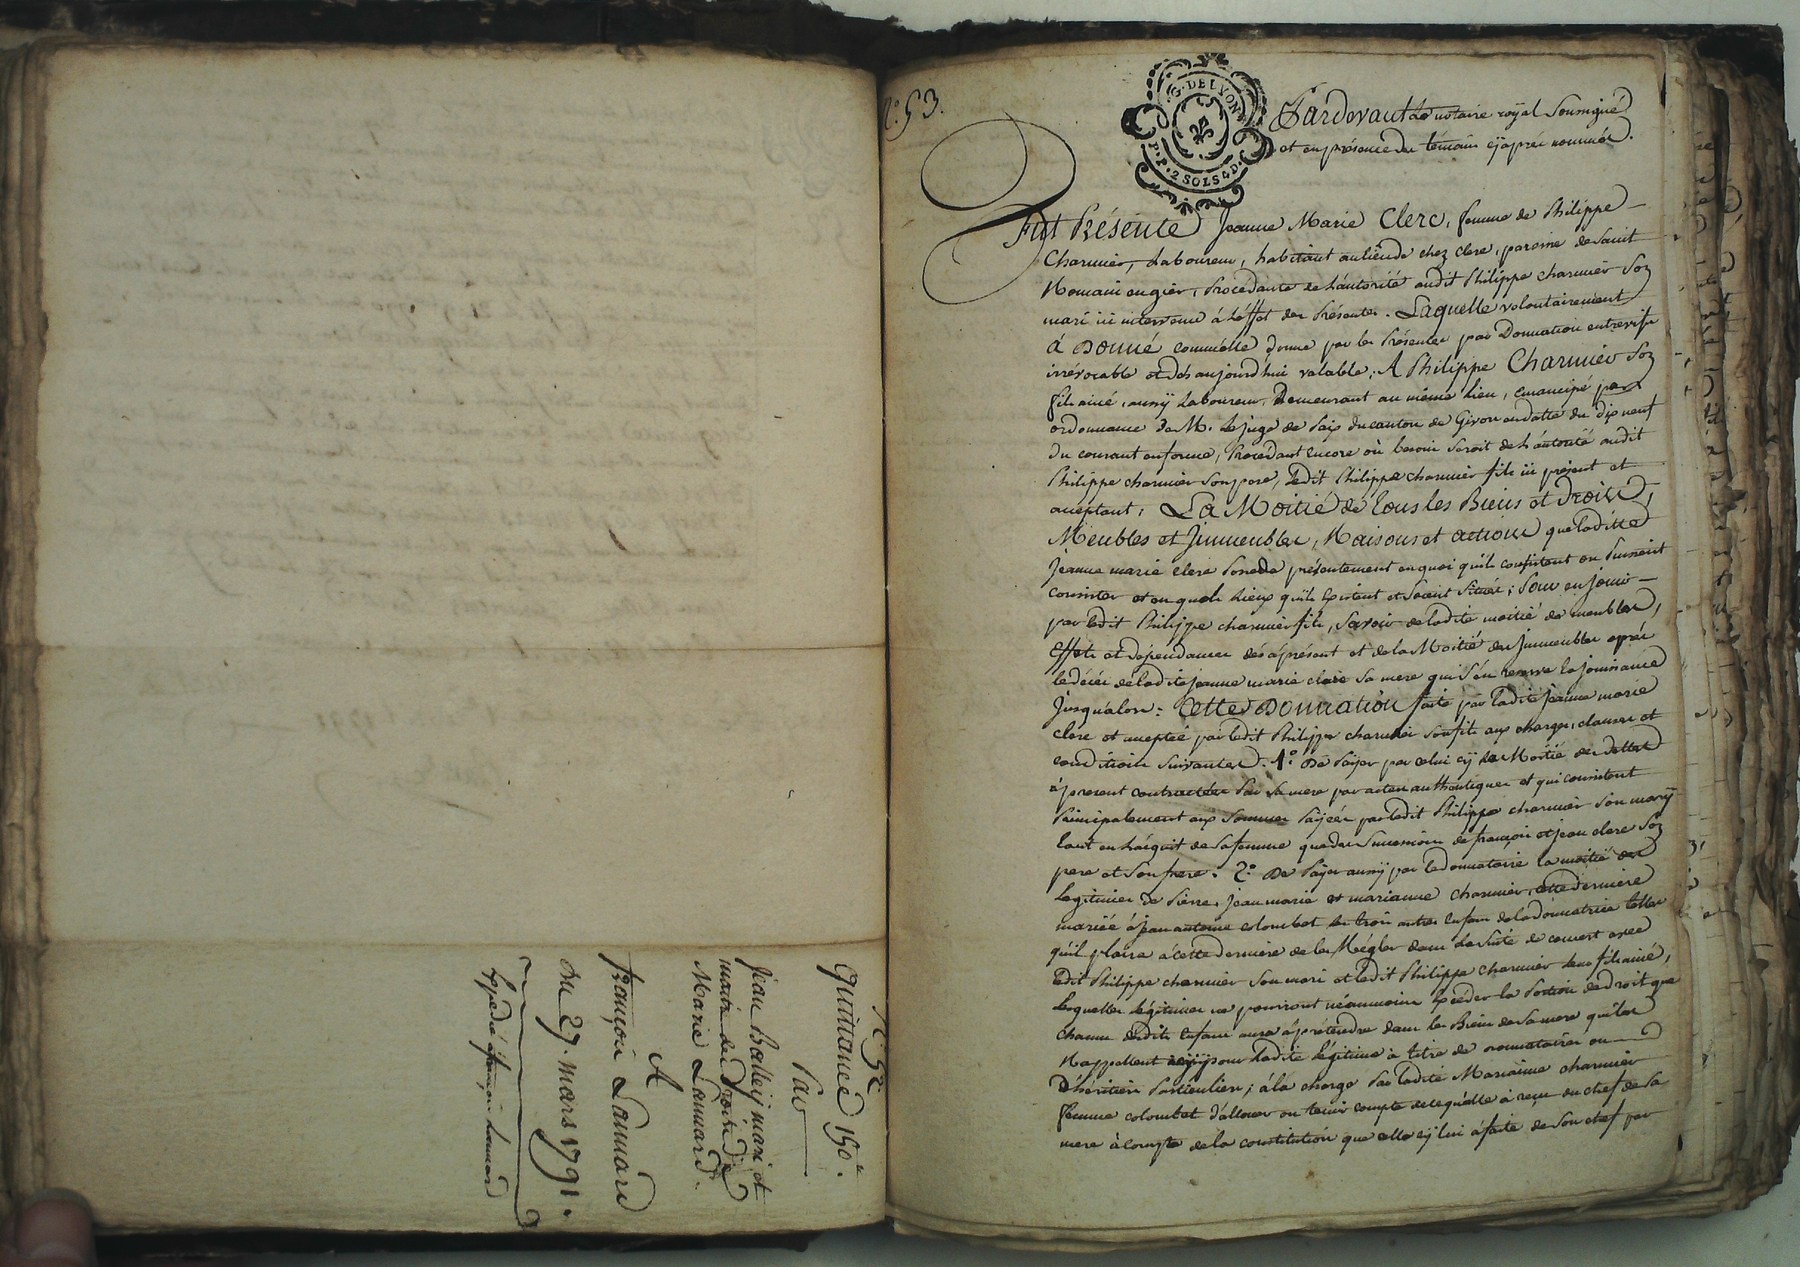 N.° 52
Quittance 150.
Par
Jean Balleÿ mari et
maitre des droits de
Marie Lannard.
A
françois Lannard
Du 27. mars 1791.
Expedié a françois Lannard
N.° 53.
G. DE LYON
P.P. 2 SOLS 4 D.
Pardevant Le notaire roÿal Soussigné
et en présence des témoins cÿ aprés nommés.
Fut Présente Jeanne Marie Clerc, femme de Philippe
Charmier, Laboureur, habitant au lieu de chez clerc, paroisse de Saint
Romain en gier, Procédante de L'autorité dudit Philippe charmier Son
mari ici intervenu à L'éffet des Présentes. Laquelle volontairement
à Donné comme elle donne par les Présentes par Donnation entrevifs
irrévocable et dès aujourd'hui valable, A Philippe Charmier Son
fils ainé, aussÿ Laboureur, Demeurant au même Lieu, émancipé par
ordonnance de M. Le juge de Paix du canton de Givors en datte du dix neuf
du courant en forme, Procedant encore où besoin Seroit de L'autorité dudit
Philippe charmier Son pere, Ledit Philippe charmier fils ici présent et
acceptant, La Moitié de tous les Biens et Droits,
Meubles et Immeubles, Raisons et actions que Laditte
Jeanne marie clerc possede présentement en quoi qu'ils consistent ou Puissent
consister et en quels Lieux qu'ils Existent et Soient Situés; Pour en Jouir
par Ledit Philippe charmier fils, Savoir de Ladite moitié des meubles,
Effets et dépendances dès à présent et de la Moitié des Immeubles aprés
le décés de Ladite Jeanne marie clerc Sa mere qui S'en reserve la Jouissance
Jusqu'alors: Cette Donnation faite par Ladite Jeanne marie
clerc et acceptée par Ledit Philippe charmier Son fils aux charges, clauses et
conditions Suivantes. 1.° De Païer par celui cÿ La Moitié des dettes
à present contractées Par Sa mere par actes authentiques et qui consistent
Principalement aux Sommes Païées par Ledit Philippe charmier Son marÿ
tant en L'acquit de Sa femme que des Successions de françois et jean clerc Son
pere et Son frere. 2.° De Païer aussÿ par Le donnataire La moitié des
Legitimes de Pierre, Jean marie et marianne charmier, cette derniere
mariée à jean antoine colombet les trois autres Enfans de la donnatrice telles
qu'il plaira à cette derniere de les Régler dans La Suite de concert avec
Ledit Philippe charmier Son mari et Ledit Philippe charmier leur fils ainé,
Lesquelles Légitimes ne pourront néanmoins Excéder la Portion de droit que
chacun desdits Enfans aura à prétendre dans les Biens de Sa mere qui les
Rappellent pour Ladite Légitime à titre de donnataires ou
D'héritiers Particuliers; à la charge Par Ladite Marianne charmier
femme colombet d'allouer ou tenir compte de ce qu'elle à reçu du chef de Sa
mere à compte de la constitution que celle cÿ lui à faite de Son chef par